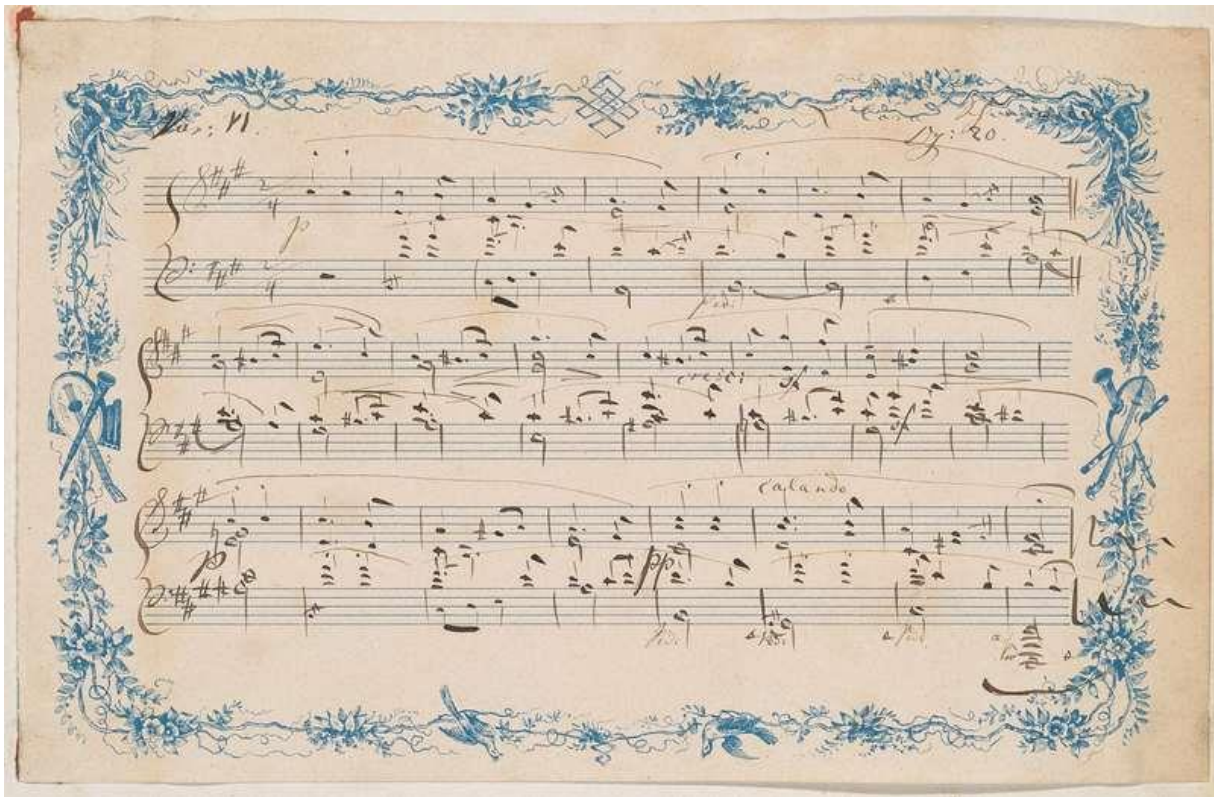 Var: VI.
Op: 20.
2/4
p
2/4
Ped.
cresc:
sf
f
calando
p
pp
Ped.
Ped.
Ped.